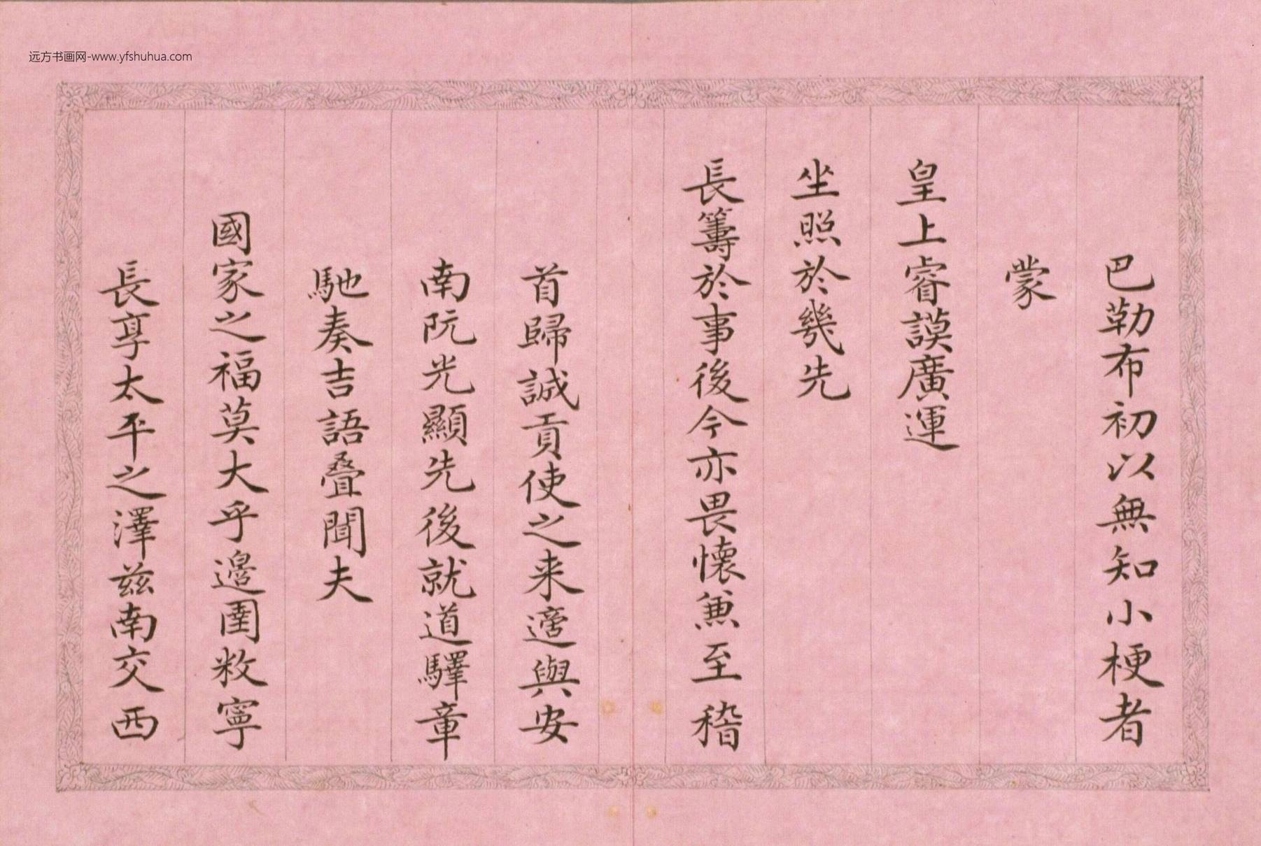 远方书画网-www.yfshuhua.com
巴勒布初以無知小梗者
蒙
皇上睿謨廣運
坐照於幾先
長籌於事後今亦畏懷兼至稽
首歸誠貢使之来適與安
南阮光顯先後就道驛章
馳奏吉語疊聞夫
國家之福莫大乎邊圉敉寧
長享太平之澤茲南交西